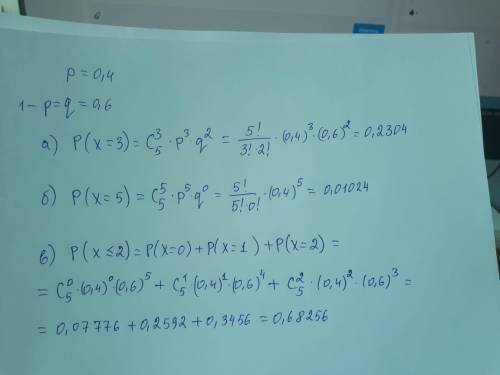 p = 0,4
1 - p = q = 0,6
а) P(x=3) = C₅³ · p³ · q² = 5!/(3!·2!) · (0,4)³ · (0,6)² = 0,2304
б) P(x=5) = C₅⁵ · p⁵ · q⁰ = 5!/(5!·0!) · (0,4)⁵ = 0,01024
в) P(x≤2) = P(x=0) + P(x=1) + P(x=2) =
= C₅⁰ · (0,4)⁰ · (0,6)⁵ + C₅¹ · (0,4)¹ · (0,6)⁴ + C₅² · (0,4)² · (0,6)³ =
= 0,07776 + 0,2592 + 0,3456 = 0,68256